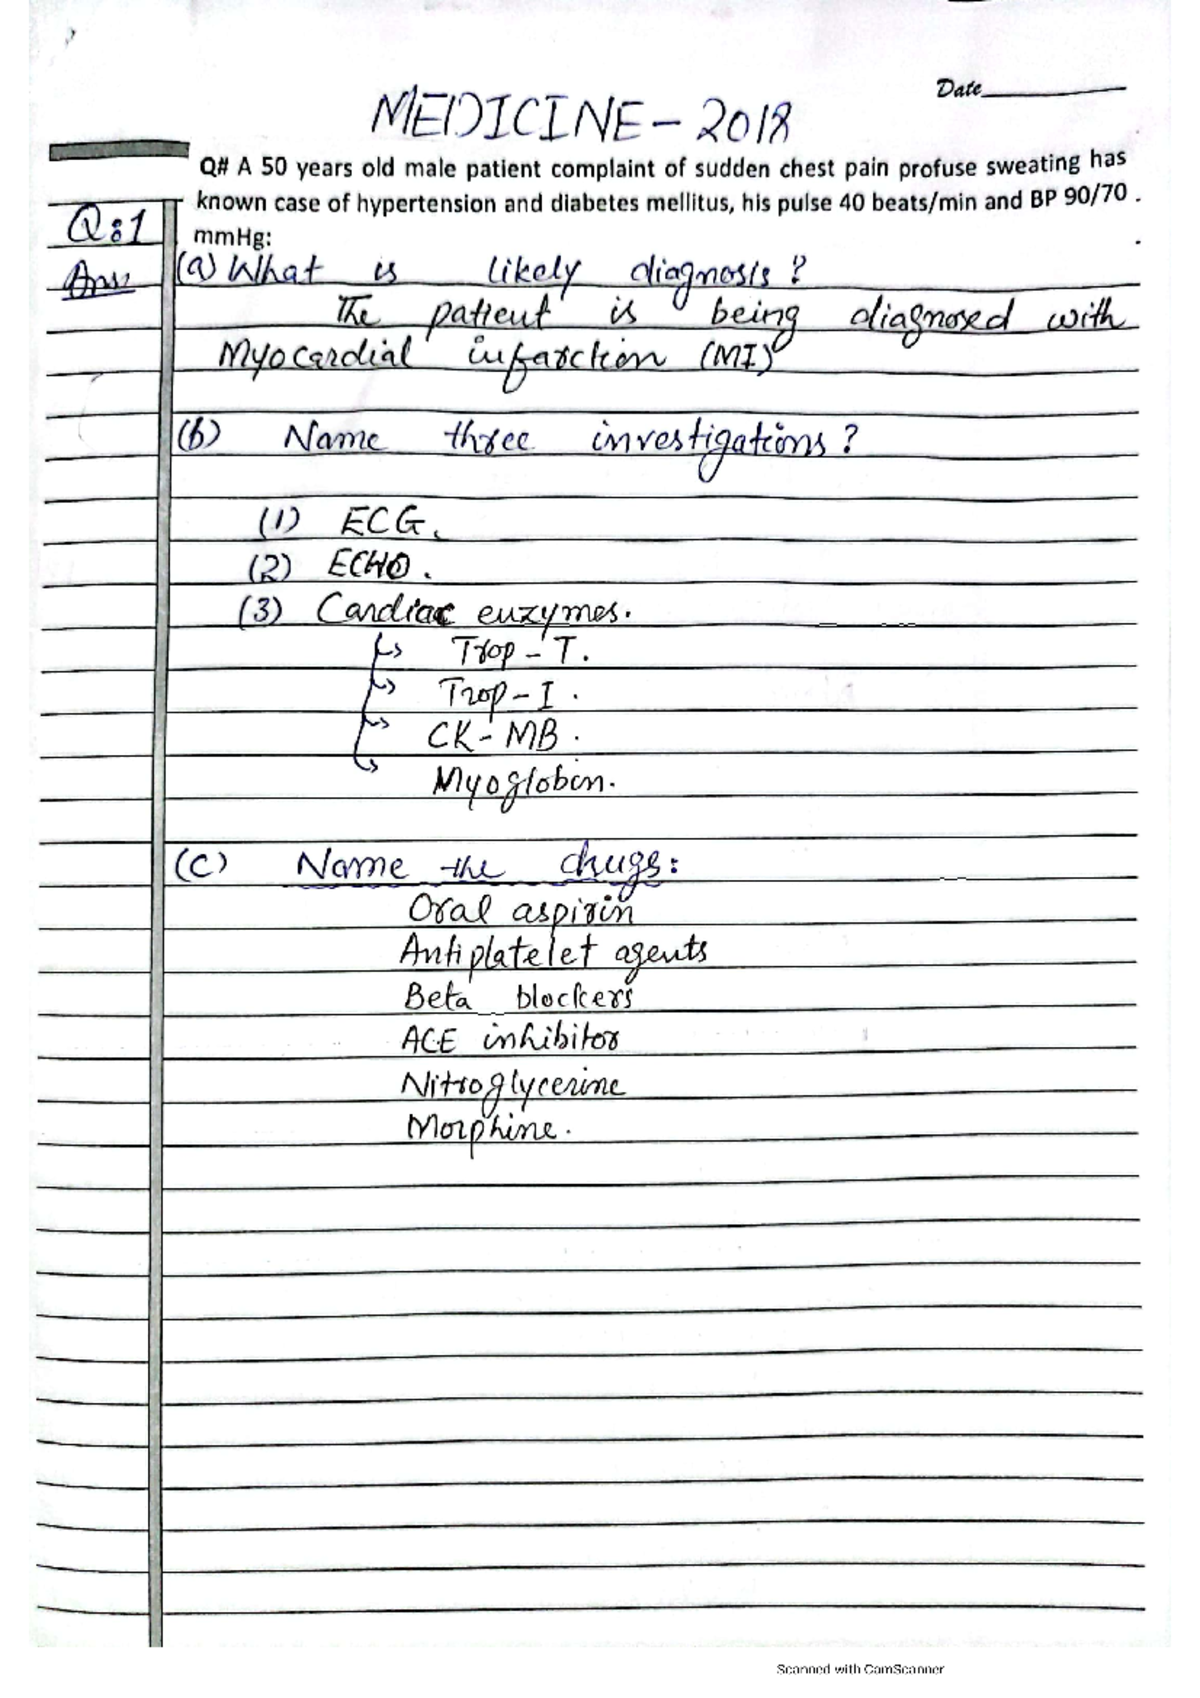 Date
MEDICINE - 2018
Q# A 50 years old male patient complaint of sudden chest pain profuse sweating has
known case of hypertension and diabetes mellitus, his pulse 40 beats/min and BP 90/70 .
Q:1 mmHg:
Ans: (a) What is likely diagnosis?
The patient is being diagnosed with
Myocardial infarction (MI)
(b) Name three investigations?
(1) ECG.
(2) ECHO.
(3) Cardiac enzymes.
↳ Trop - T.
↳ Trop - I .
↳ CK - MB .
↳ Myoglobin.
(C) Name the drugs:
Oral aspirin
Antiplatelet agents
Beta blockers
ACE inhibitor
Nitroglycerine
Morphine.
Scanned with CamScanner